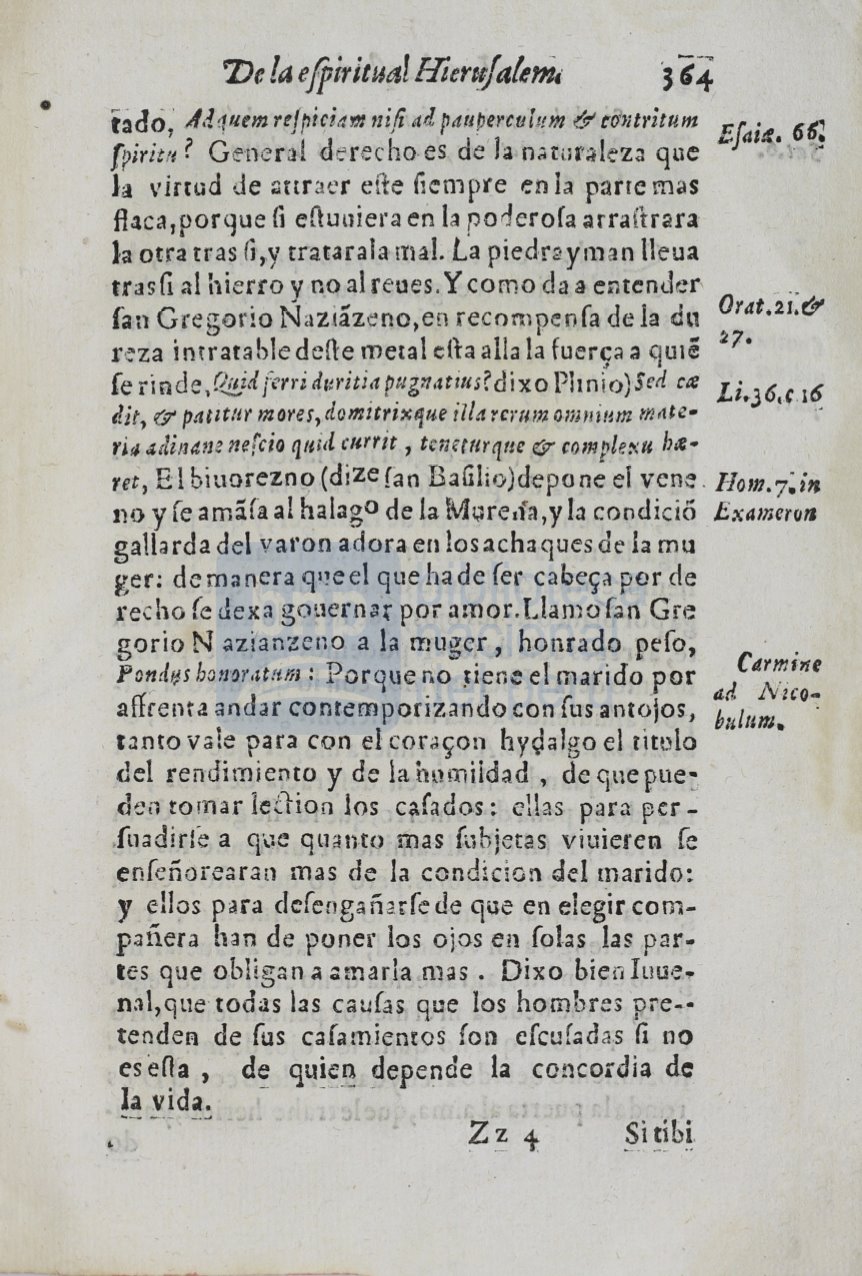 De la eſpiritual Hieruſalem. 364
tado, Ad quem reſpiciam niſi ad pauperculum & contritum
ſpiritu? General derecho es de la naturaleza que
la virtud de attraer eſte ſiempre en la parte mas
flaca, porque ſi eſtuuiera en la poderoſa arraſtrara
la otra tras ſi, y tratarala mal. La piedra yman lleua
tras ſi al hierro y no al reues. Y como da a entender
ſan Gregorio Naziãzeno, en recompenſa de la du
reza intratable deſte metal eſta alla la fuerça a quiẽ
ſe rinde, Quid ferri duritia pugnatius? dixo Plinio) Sed cæ
dit, & patitur mores, domitrixque illa rerum omnium mate-
ria ad inane neſcio quid currit, teneturque & complexu hæ-
ret, El biuorezno (dize ſan Baſilio) depone el vene
no y ſe amãſa al halago de la Murena, y la condiciõ
gallarda del varon adora en los achaques de la mu
ger: de manera que el que ha de ſer cabeça por de
recho ſe dexa gouernar por amor. Llamo ſan Gre
gorio Nazianzeno a la muger, honrado peſo,
Pondus honoratum: Porque no tiene el marido por
affrenta andar contemporizando con ſus antojos,
tanto vale para con el coraçon hydalgo el titulo
del rendimiento y de la humildad, de que pue-
den tomar lection los caſados: ellas para per-
ſuadirſe a que quanto mas ſubjetas viuieren ſe
enſeñorearan mas de la condicion del marido:
y ellos para deſengañarſe de que en elegir com-
pañera han de poner los ojos en ſolas las par-
tes que obligan a amarla mas. Dixo bien Iuue-
nal, que todas las cauſas que los hombres pre-
tenden de ſus caſamientos ſon eſcuſadas ſi no
es eſta, de quien depende la concordia de
la vida.
Zz 4 Si tibi
Eſaiæ. 66.
Orat. 21. &
27.
Li. 36. c 16
Hom. 7. in
Exameron
Carmine
ad Nico-
bulum.